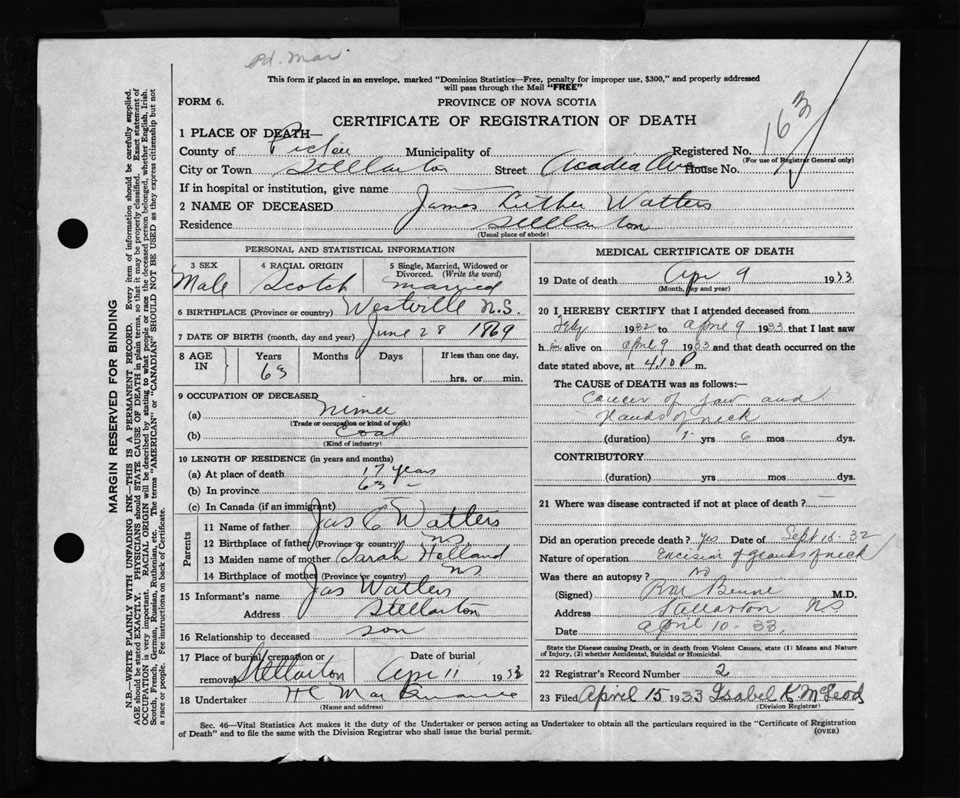 Pd. Mar
This form if placed in an envelope, marked "Dominion Statistics—Free, penalty for improper use, $300," and properly addressed
will pass through the Mail "FREE"
FORM 6.
PROVINCE OF NOVA SCOTIA
CERTIFICATE OF REGISTRATION OF DEATH
163
1 PLACE OF DEATH—
County of Pictou Municipality of Registered No.
(For use of Registrar General only)
City or Town Stellarton Street Acadia Ave House No.
If in hospital or institution, give name
2 NAME OF DECEASED James Luther Watters
Residence Stellarton
(Usual place of abode)
PERSONAL AND STATISTICAL INFORMATION
3 SEX Male
4 RACIAL ORIGIN Scotch
5 Single, Married, Widowed or Divorced. (Write the word) Married
6 BIRTHPLACE (Province or country) Westville N.S.
7 DATE OF BIRTH (month, day and year) June 28 1869
8 AGE IN Years 63 Months Days If less than one day, hrs. or min.
9 OCCUPATION OF DECEASED
(a) Miner
(Trade or occupation or kind of work)
(b) Coal
(Kind of industry)
10 LENGTH OF RESIDENCE (in years and months)
(a) At place of death 17 years
(b) In province 63 —
(c) In Canada (if an immigrant)
Parents
11 Name of father Jas C Watters
12 Birthplace of father (Province or country) NS
13 Maiden name of mother Sarah Holland
14 Birthplace of mother (Province or country) NS
15 Informant's name Jas Watters
Address Stellarton
16 Relationship to deceased son
17 Place of burial, cremation or removal Stellarton Date of burial Apr 11 1933
18 Undertaker H C Mac
(Name and address)
MEDICAL CERTIFICATE OF DEATH
19 Date of death Apr 9 1933
(Month, day and year)
20 I HEREBY CERTIFY that I attended deceased from
Feby 1932 to April 9 1933 that I last saw
h im alive on April 9 1933 and that death occurred on the
date stated above, at 4.10 P m.
The CAUSE OF DEATH was as follows:—
Cancer of Jaw and
Glands of neck
(duration) 1 yrs 6 mos dys.
CONTRIBUTORY
(duration) yrs mos dys.
21 Where was disease contracted if not at place of death?
Did an operation precede death? yes Date of Sept 15. 32
Nature of operation Excision of glands of neck
Was there an autopsy? no
(Signed) M.D.
Address Stellarton NS
Date April 10 - 33.
State the Disease causing Death, or in death from Violent Causes, state (1) Means and Nature
of Injury, (2) whether Accidental, Suicidal or Homicidal.
22 Registrar's Record Number 2
23 Filed April 15 1933 Isabel K McLeod
(Division Registrar)
Sec. 46—Vital Statistics Act makes it the duty of the Undertaker or person acting as Undertaker to obtain all the particulars required in the "Certificate of Registration
of Death" and to file the same with the Division Registrar who shall issue the burial permit.
(OVER)
MARGIN RESERVED FOR BINDING
N.B.—WRITE PLAINLY WITH UNFADING INK—THIS IS A PERMANENT RECORD. Every item of information should be carefully supplied.
AGE should be stated EXACTLY. PHYSICIANS should STATE CAUSE OF DEATH in plain terms, so that it may be properly classified. Exact statement of
OCCUPATION is very important. RACIAL ORIGIN will be described by stating to what people or race the deceased person belonged, whether English, Irish,
Scotch, French, German, Russian, Ruthenian, etc. The terms "AMERICAN" or "CANADIAN" SHOULD NOT BE USED as they express citizenship but not
a race or people. See instructions on back of Certificate.